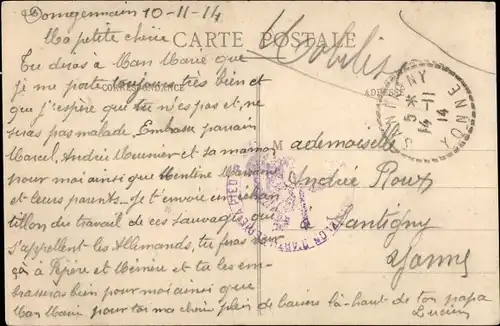 Domgermain 10-11-14
Ma petite chérie
Tu diras à Man Marie que
je me porte toujours très bien et
que j'espère que tu n'es pas et ne
seras pas malade. Embrasse parrain
Marcel, André Meunier et sa maman
pour moi ainsi que
et leurs parents. Je t'envoie un échan
tillon du travail de ces sauvages qui
s'appellent les Allemands, tu feras voir
ça à Pépère et Mémère et tu les em-
brasseras bien pour moi ainsi que
Man Marie pour toi ma chérie plein de baisers là-haut de ton papa
Lucien
CARTE POSTALE
CORRESPONDANCE
ADRESSE
Mobilis
SANTIGNY
5 *
14 -11
14
YONNE
Mademoiselle
Andrée Roux
Santigny
Yonne